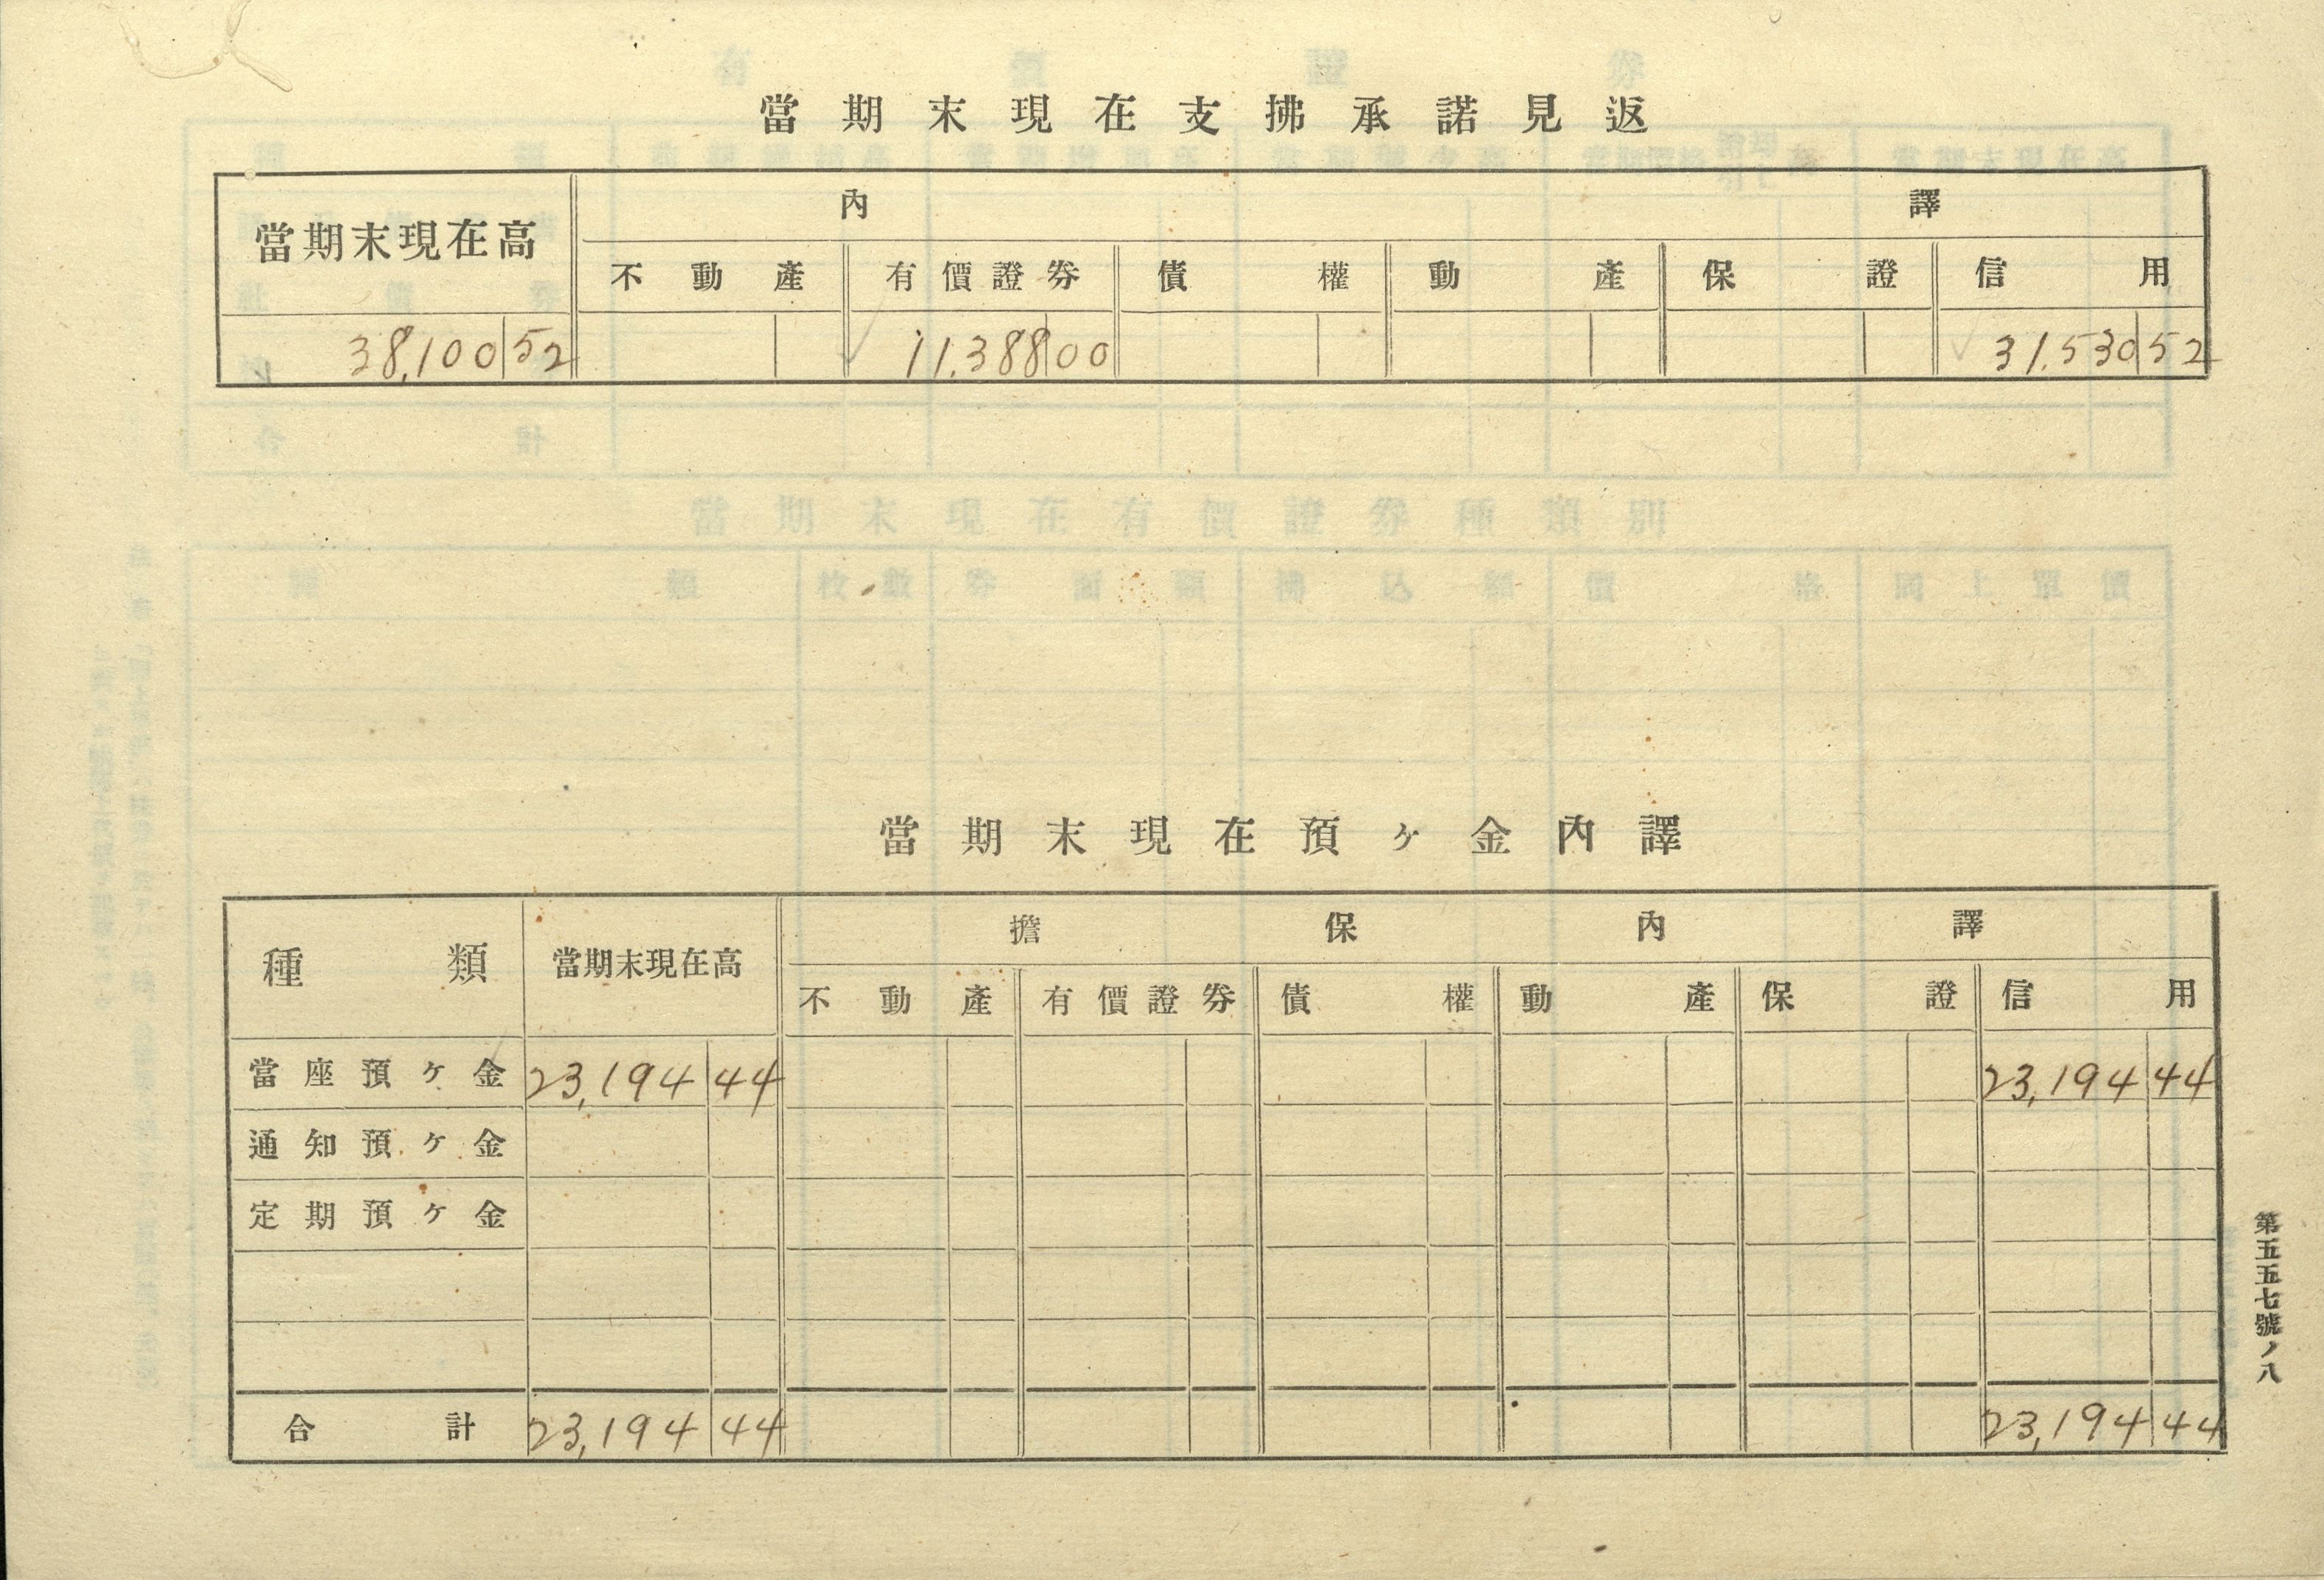 當期末現在支拂承諾見返
當期末現在高 內譯
不動產 有價證券 債權 動產 保證 信用
38,100 52 11,388 00 31,530 52
當期末現在預ヶ金內譯
種類 當期末現在高 擔保內譯
不動產 有價證券 債權 動產 保證 信用
當座預ヶ金 23,194 44 23,194 44
通知預ヶ金
定期預ヶ金
合計 23,194 44 23,194 44
第五五七號ノ八